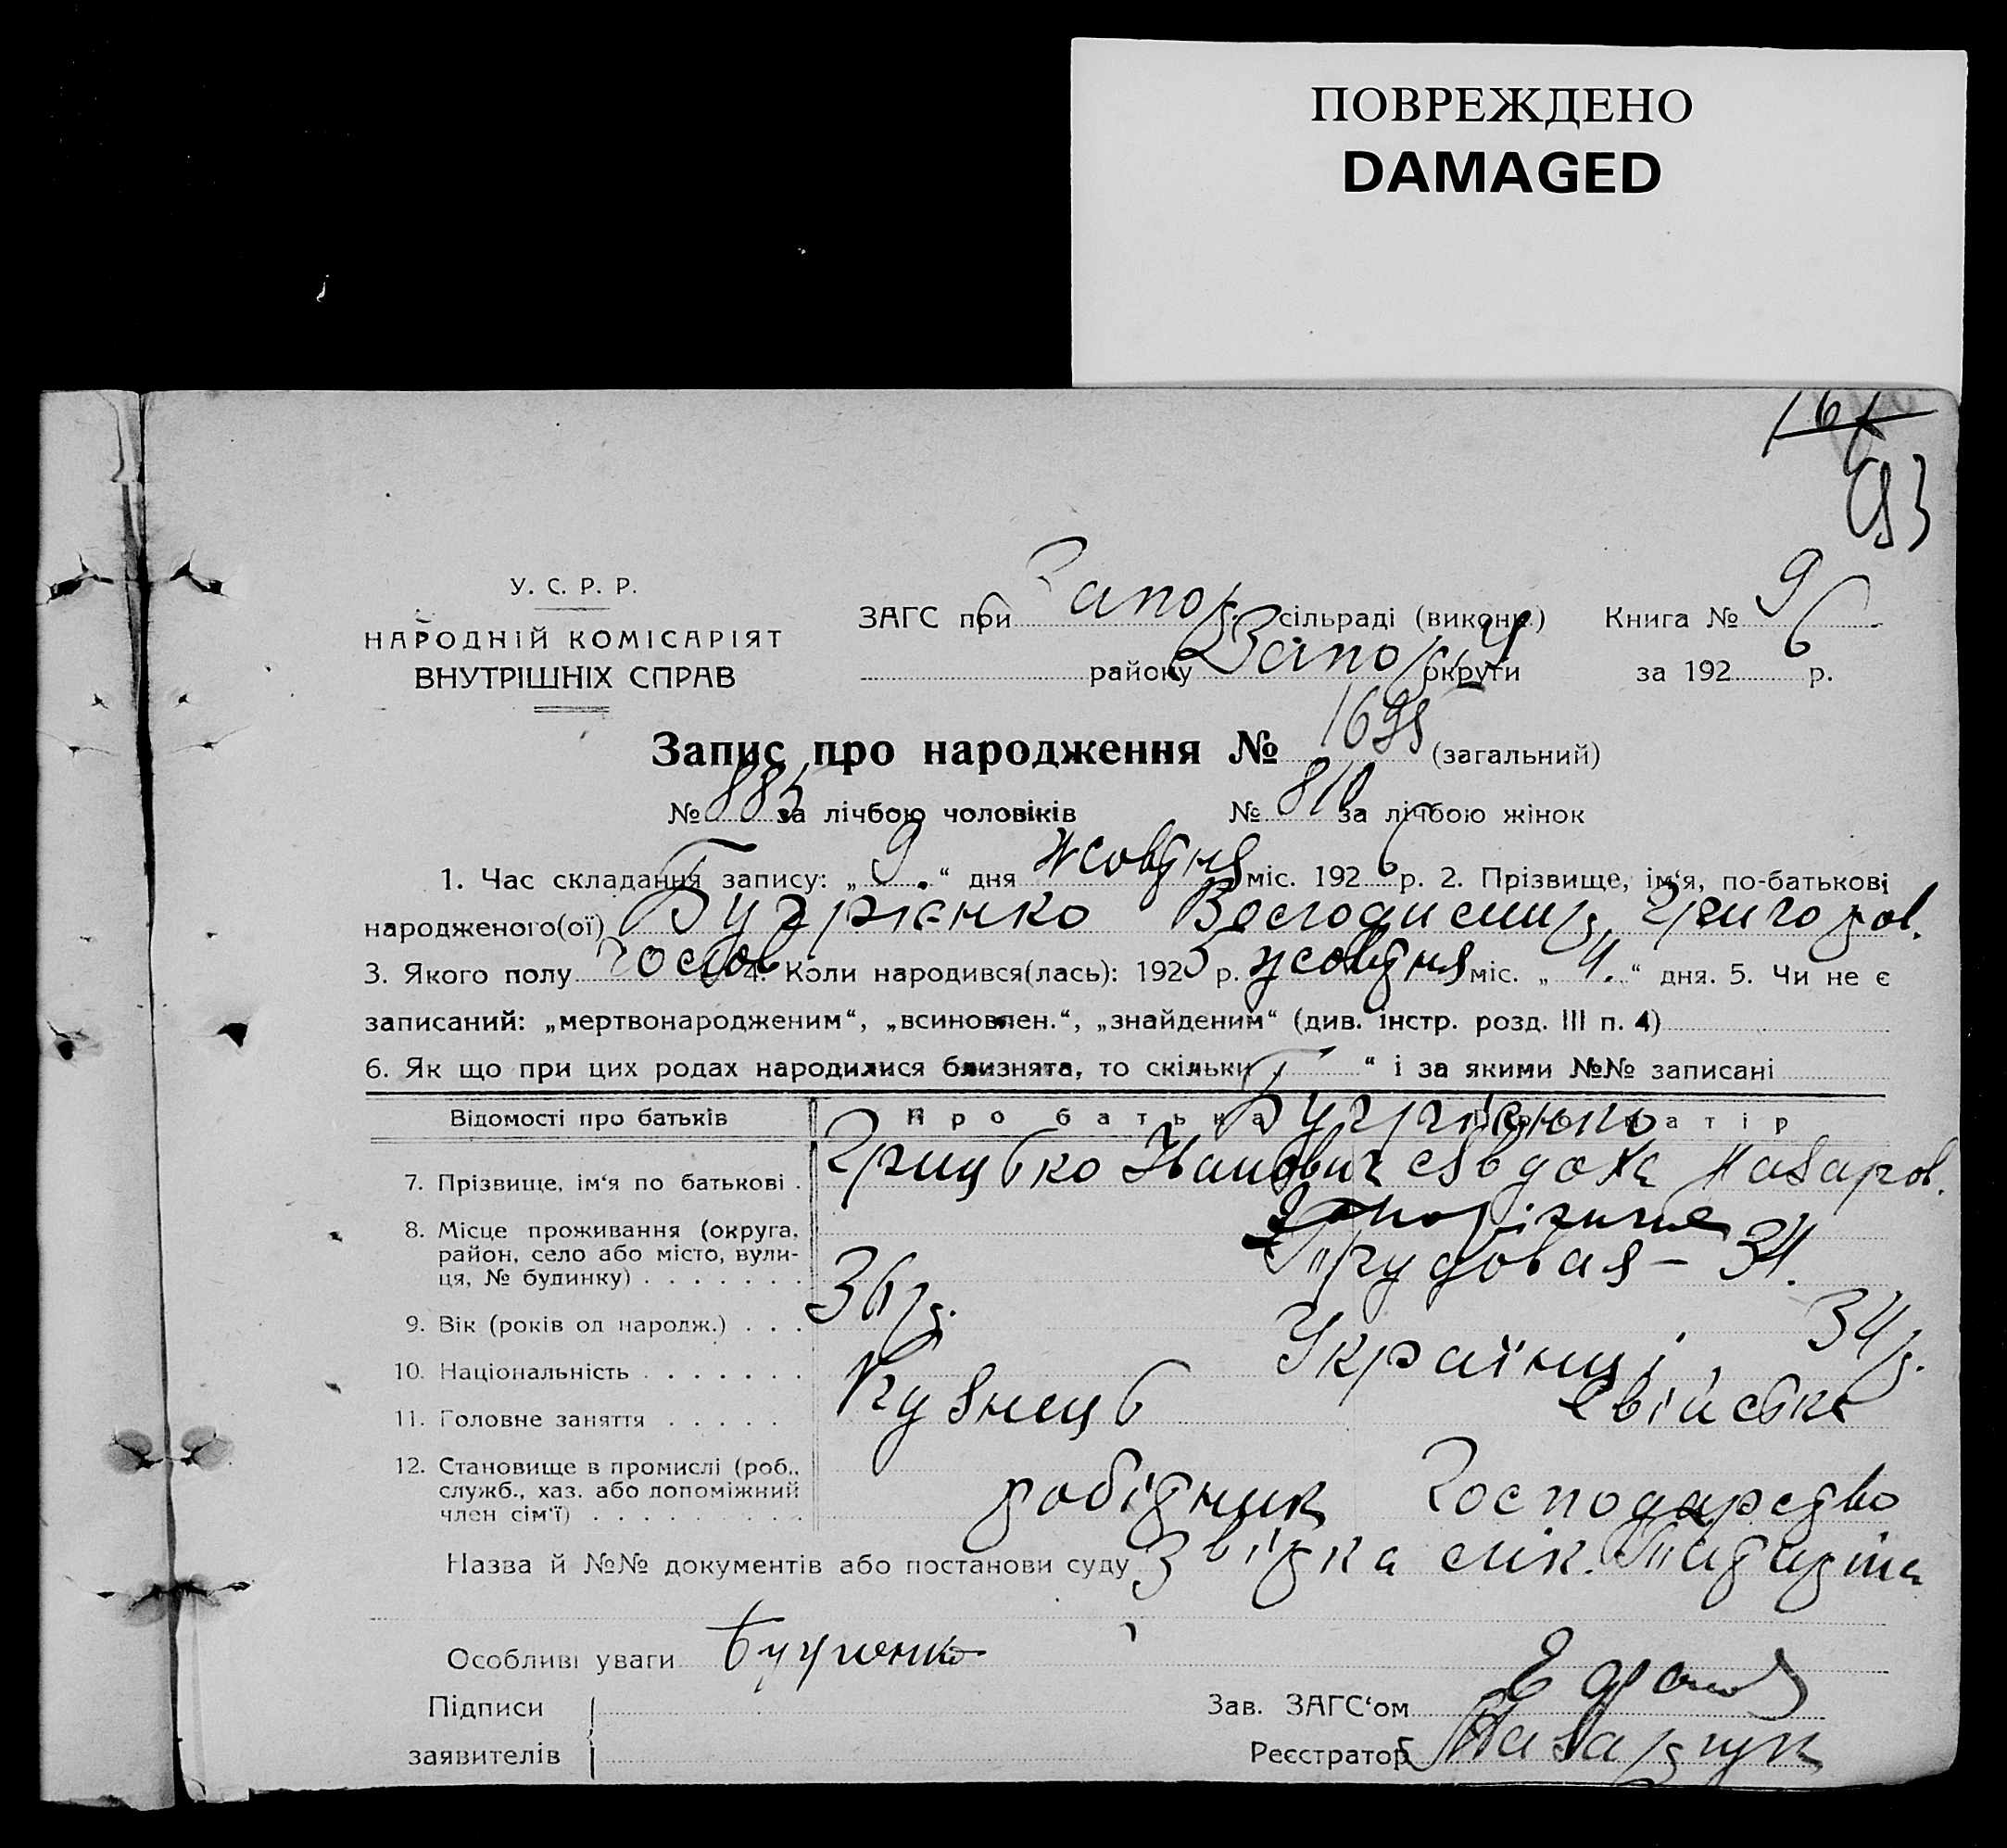 ПОВРЕЖДЕНО
DAMAGED
93
У. С. Р. Р.
НАРОДНІЙ КОМІСАРІЯТ
ВНУТРІШНІХ СПРАВ
ЗАГС при Запор. сільраді (викони.) Книга № 9
району Запоріз округи за 1926 р.
Запис про народження № 1695 (загальний)
№ 885 за лічбою чоловіків № 810 за лічбою жінок
1. Час складання запису: „9.“ дня жовтня міс. 1926 р. 2. Прізвище, ім‘я, по-батькові
народженого(ої) Володимир Григоров.
3. Якого полу чолов 4. Коли народився(лась): 1925 р. жовтня міс. „4.“ дня. 5. Чи не є
записаний: „мертвонародженим“, „всиновлен.“, „знайденим“ (див. інстр. розд. III п. 4)
6. Як що при цих родах народилися близнята, то скільки “ і за якими №№ записані
Відомості про батьків Про батька Про матір
7. Прізвище, ім‘я по батькові . Грицько Іванович Явдоха Назаров.
8. Місце проживання (округа, Запоріжжя
район, село або місто, вули- Трудовая – 34.
ця, № будинку) . . . . . . .
9. Вік (років од народж.) . . . 36 р. 34 р.
10. Національність . . . . . . . Українці
11. Головне заняття . . . . . Кузнець свійське
12. Становище в промислі (роб.,
служб., хаз. або допоміжний робітник господарство
член сім‘ї) . . . . . . . . .
Назва й №№ документів або постанови суду Звістка лік.
Особливі уваги
Підписи
заявителів
Зав. ЗАГС‘ом
Реєстратор Назарчук